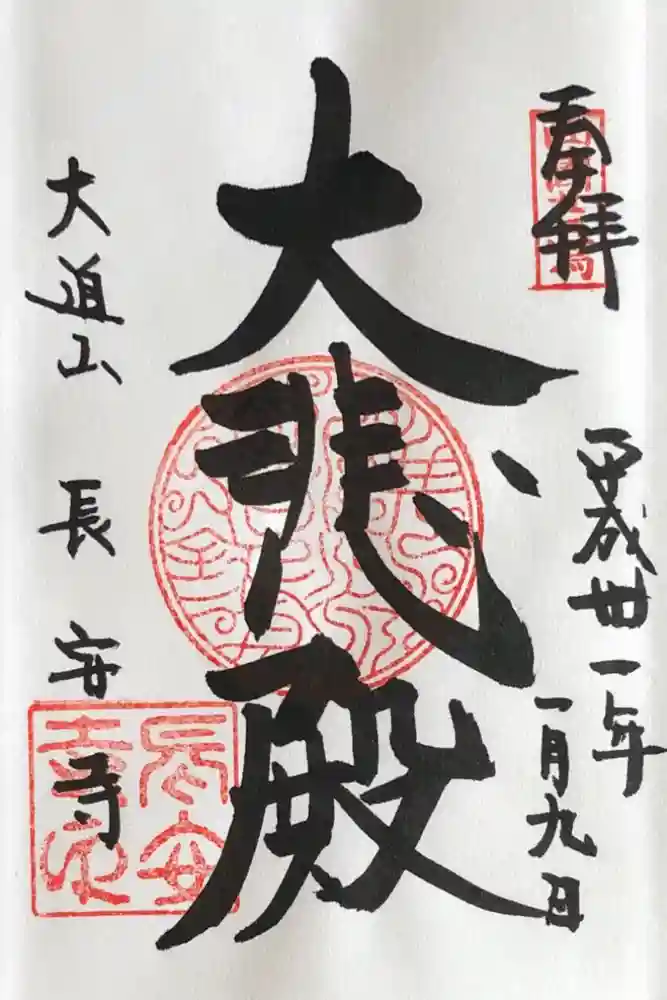 奉拝
平成卅一年
一月九日
大悲殿
大道山 長安寺